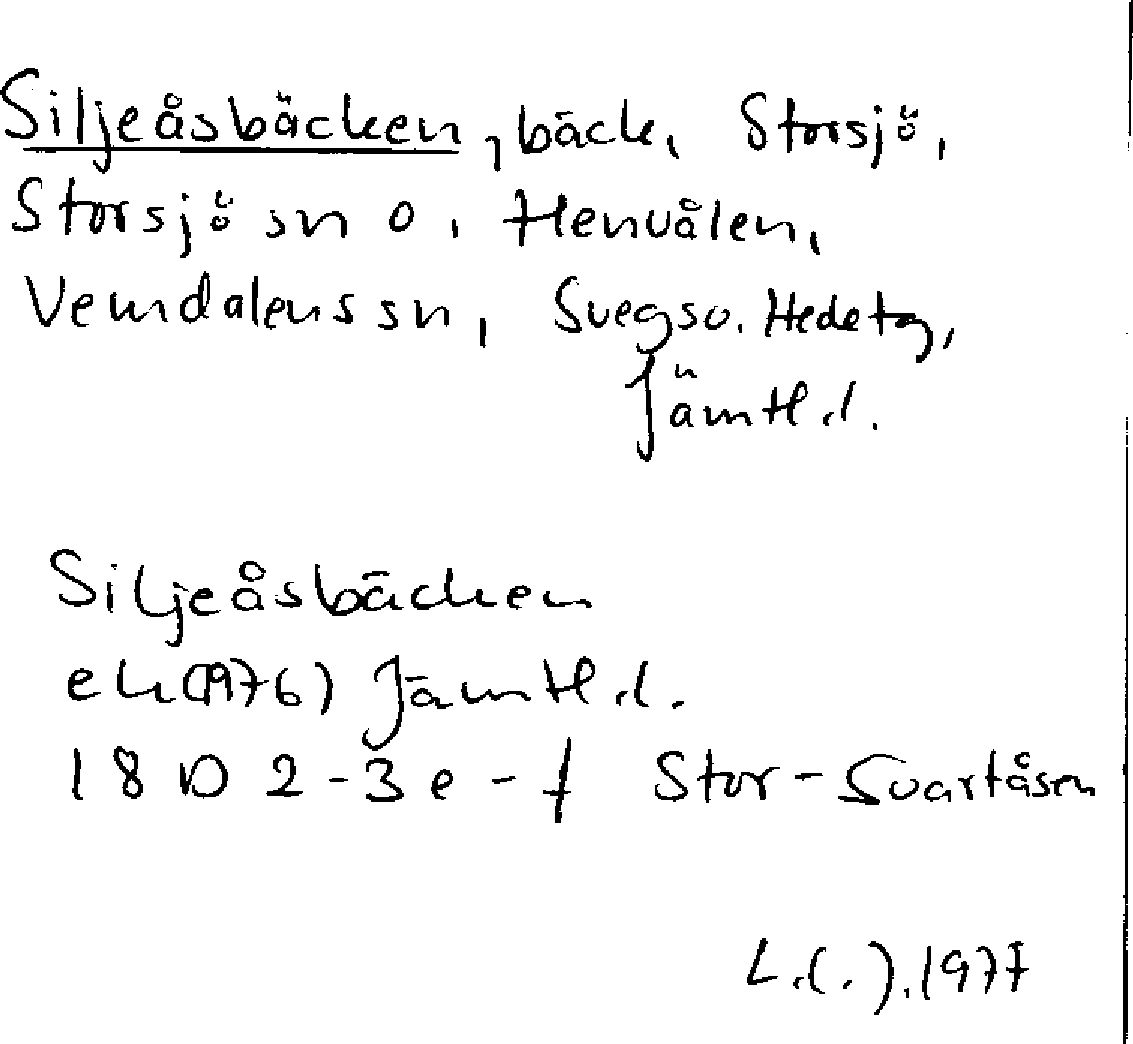 Siljeåsbäcken, bäck, Storsjö,
Storsjö sn o, Henvålen,
Vemdalens sn, Svegs o. Hede tg,
Jämtl.l.
Siljeåsbäcken
ek (1976) Jämtl.l.
18 D 2-3 e - f Stor-Svartåsen
L.(.).1977